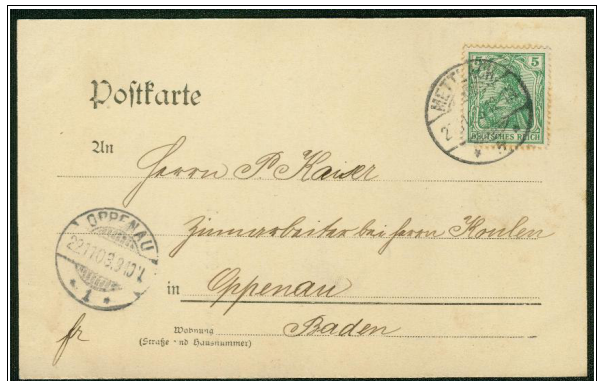 Postkarte
5
DEUTSCHES REICH
An
Herrn P. Kaiser
Zimmerarbeiter bei Herrn Koulen
OPPENAU
22.11.03.9-10V.
* 1 *
in Oppenau
Baden
fr
Wohnung
(Straße und Hausnummer)